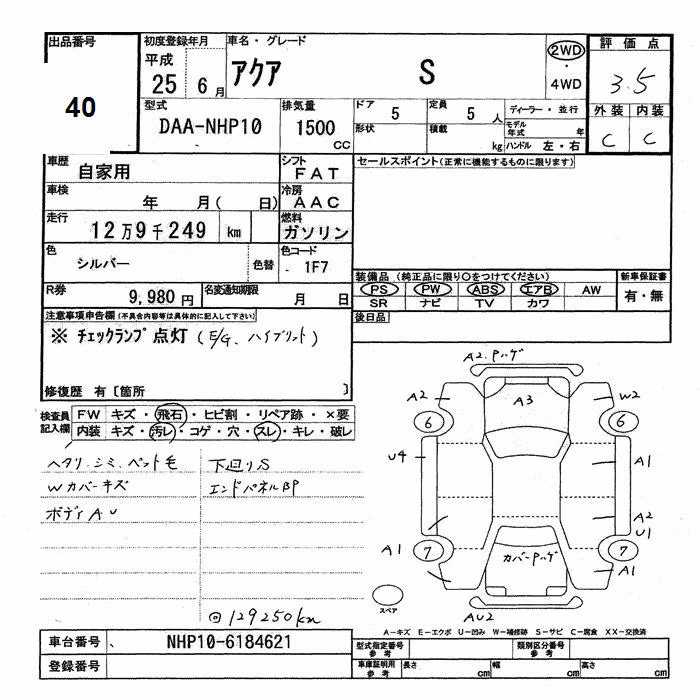 出品番号
40
初度登録年月
平成
25 6月
車名・グレード
アクア S
2WD
・
4WD
評価点
3.5
外装 内装
C C
型式
DAA-NHP10
排気量
1500
CC
ドア 5
定員 5 人
ディーラー・並行
形状
積載 kg
モデル年式 年
ハンドル 左・右
車歴
自家用
シフト
FAT
セールスポイント(正常に機能するものに限ります)
車検
年 月( 日)
冷房
AAC
走行
12万9千249 km
燃料
ガソリン
色
シルバー
色替
色コード
1F7
装備品 (純正品に限り○をつけてください)
新車保証書
PS PW ABS エアB AW
有・無
SR ナビ TV カワ
R券
9,980 円
名変通知期限
月 日
後日品
注意事項申告欄(不具合内容等は具体的に記入して下さい)
※ チェックランプ点灯 (E/G、ハイブリット)
修復歴 有〔箇所 〕
検査員記入欄
FW キズ・飛石・ヒビ割・リペア跡・×要
内装 キズ・汚レ・コゲ・穴・スレ・キレ・破レ
ヘタリ・シミ・ペット毛 下回りS
Wカバーキズ エンドパネルBP
ボディAU
◎129250km
A2.Pハゲ
A2 A3 W2
6 6
U4 A1
A2
U1
A1 7 カバーPハゲ 7 A1
スペア
AU2
A－キズ E－エクボ U－凹み W－補修跡 S－サビ C－腐食 XX－交換済
車台番号 NHP10-6184621
登録番号
型式指定番号 参考
類別区分番号 参考
車庫証明用 参考
長さ cm
幅 cm
高さ cm